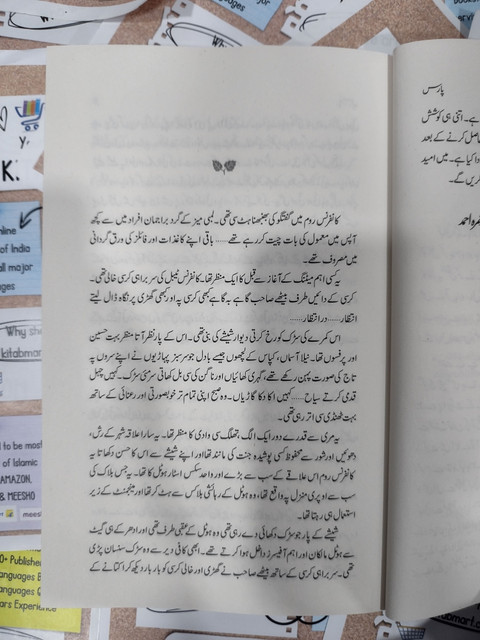 کانفرنس روم میں گفتگو کی بھنبھناہٹ سی تھی۔ لمبی میز کے گرد براجمان افراد میں سے کچھ
آپس میں معمول کی بات چیت کر رہے تھے...... باقی اپنے کاغذات اور فائلز کی ورق گردانی
میں مصروف تھے۔
یہ کسی اہم میٹنگ کے آغاز سے قبل کا ایک منظر تھا۔ کانفرنس ٹیبل کی سربراہی کرسی خالی تھی۔
کرسی کے دائیں طرف بیٹھے صاحب گاہے بہ گاہے کبھی کرسی پہ اور کبھی گھڑی پر نگاہ ڈال لیتے
انتظار...... در انتظار......
اس کمرے کی سڑک کو رخ کرتی دیوار شیشے کی بنی تھی۔ اس کے پار نظر آتا منظر بہت حسین
اور پرفسوں تھا۔ نیلا آسماں، کپاس کے گچھوں جیسے بادل جو سرسبز پہاڑیوں نے اپنے سروں پہ
تاج کی صورت پہن رکھے تھے، گہری کھائیاں اور ناگن کی سی بل کھاتی سرمئی سڑک۔ کہیں چہل
قدمی کرتے سیاح...... کہیں اکا دکا گاڑیاں۔ وہ صبح اپنی تمام تر خوبصورتی اور رعنائی کے ساتھ
بہت ٹھنڈی سی اتر رہی تھی۔
یہ مری سے قدرے دور ایک الگ تھلگ سی وادی کا منظر تھا۔ یہ سارا علاقہ شہر کے رش،
دھوئیں اور شور سے محفوظ کسی پوشیدہ جنت کی مانند تھا اور اپنے شیشے سے اس کا حسن دکھاتا یہ
کانفرنس روم اس علاقے کے سب سے بڑے اور واحد سکس اسٹار ہوٹل کا تھا۔ یہ جس بلاک کی
سب سے اوپری منزل پہ واقع تھا، وہ ہوٹل کے رہائشی بلاکس سے ہٹ کر تھا اور مینجمنٹ کے زیر
استعمال ہی رہتا تھا۔
شیشے کے پار جو سڑک دکھائی دے رہی تھی وہ ہوٹل کے عقبی طرف تھی اور ادھر کے ہی گیٹ
سے ہوٹل مالکان اور اہم آفیسرز داخل ہوا کرتے تھے۔ ابھی کافی دیر سے وہ سڑک سنسان پڑی
تھی۔ سربراہی کرسی کے ساتھ بیٹھے صاحب نے گھڑی اور خالی کرسی کو بار بار دیکھ کر اکتانے کے
پارس
ہے۔ اتنی ہی کوشش
حاصل کرنے کے بعد
ادا کیا ہے۔ میں امید
کریں گے۔
احمد
y,
K.
nline
of India
all major
ages
Why sh
kitabmar
to be most
of Islamic
AMAZON,
& MEESHO
meesh
0+ Publisher
anguages B
anguages Q
ars Experience